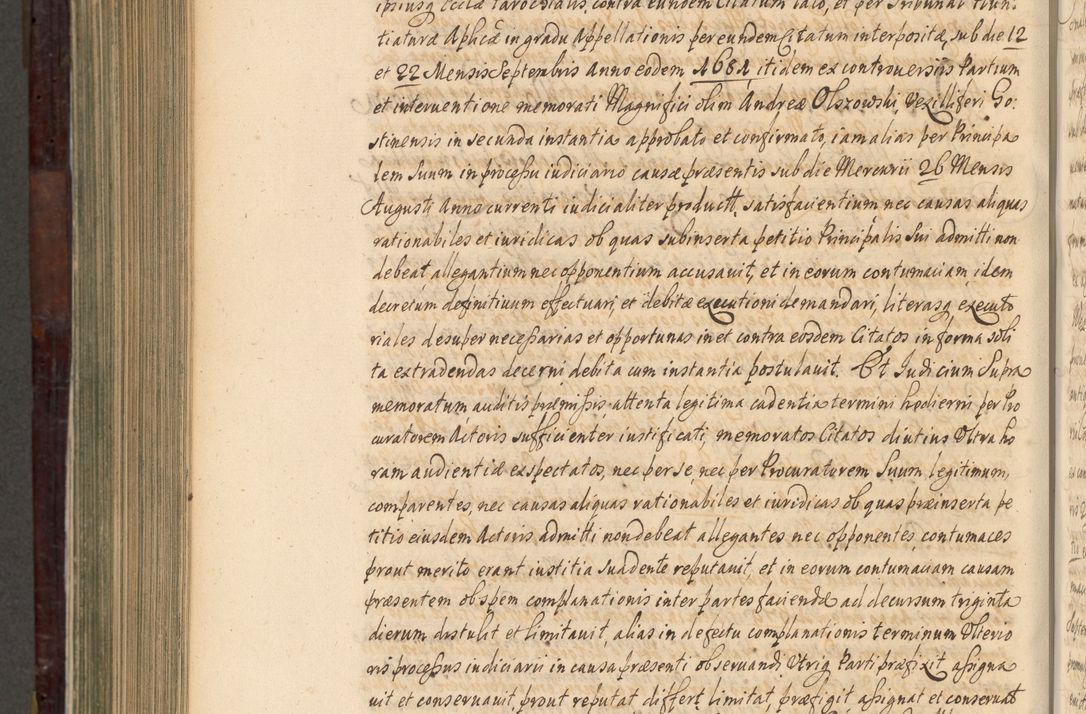 ipsiusq Ecclae Parochialis, contra eundem Citatum lato, et per Tribunal Nun:
tiaturae Aplicae in gradu Appellationis per eundem Citatum interpositae, sub die 12
et 22 Mensis Septembris Anno eodem 1681 itidem ex controversiis Partium
et interventione memorati Magnifici olim Andreae Olszowski, Vexilliferi Go:
stinensis in secunda instantia approbato et confirmato, iam alias per Principa
lem Suum in processu iudiciario causae praesentis sub die Mercurii 26 Mensis
Augusti Anno currenti iudicialiter productt. satisfacientium nec causas aliquas
rationabiles et iuridicas ob quas subinserta petitio Principalis Sui admitti non
debeat, allegantium nec opponentium accusavit, et in eorum contumaciam idem
decretum definitivum effectuari, et debitae executioni demandari, literasq executo
riales desuper necessarias et opportunas in et contra eosdem Citatos in forma soli
ta extradendas decerni debita cum instantia postulavit. Et Iudicium Supra
memoratum, auditis praemissis, attenta legitima cadentia termini hodierni per Pro
curatorem Actoris sufficienter iustificati, memoratos Citatos diutius Ultra ho
ram audientiae expectatos, nec per se, nec per Procuratorem Suum legitimum,
comparentes, nec causas aliquas rationabiles et iuridicas ob quas praeinserta pe
titio eiusdem Actoris admitti non debeat allegantes nec opponentes, contumaces
prout merito erant iustitia suadente reputavit, et in eorum contumaciam causam
praesentem ob spem complanationis inter partes faciendae ad decursum triginta
dierum distulit et limitavit, alias in defectu complanationis terminum Ulterio
ris processus iudiciarii in causa praesenti observandi Utriq Parti praefixit, assigna
vit et conservavit, prout reputat, differt, limitat, praefigit, assignat et conservat